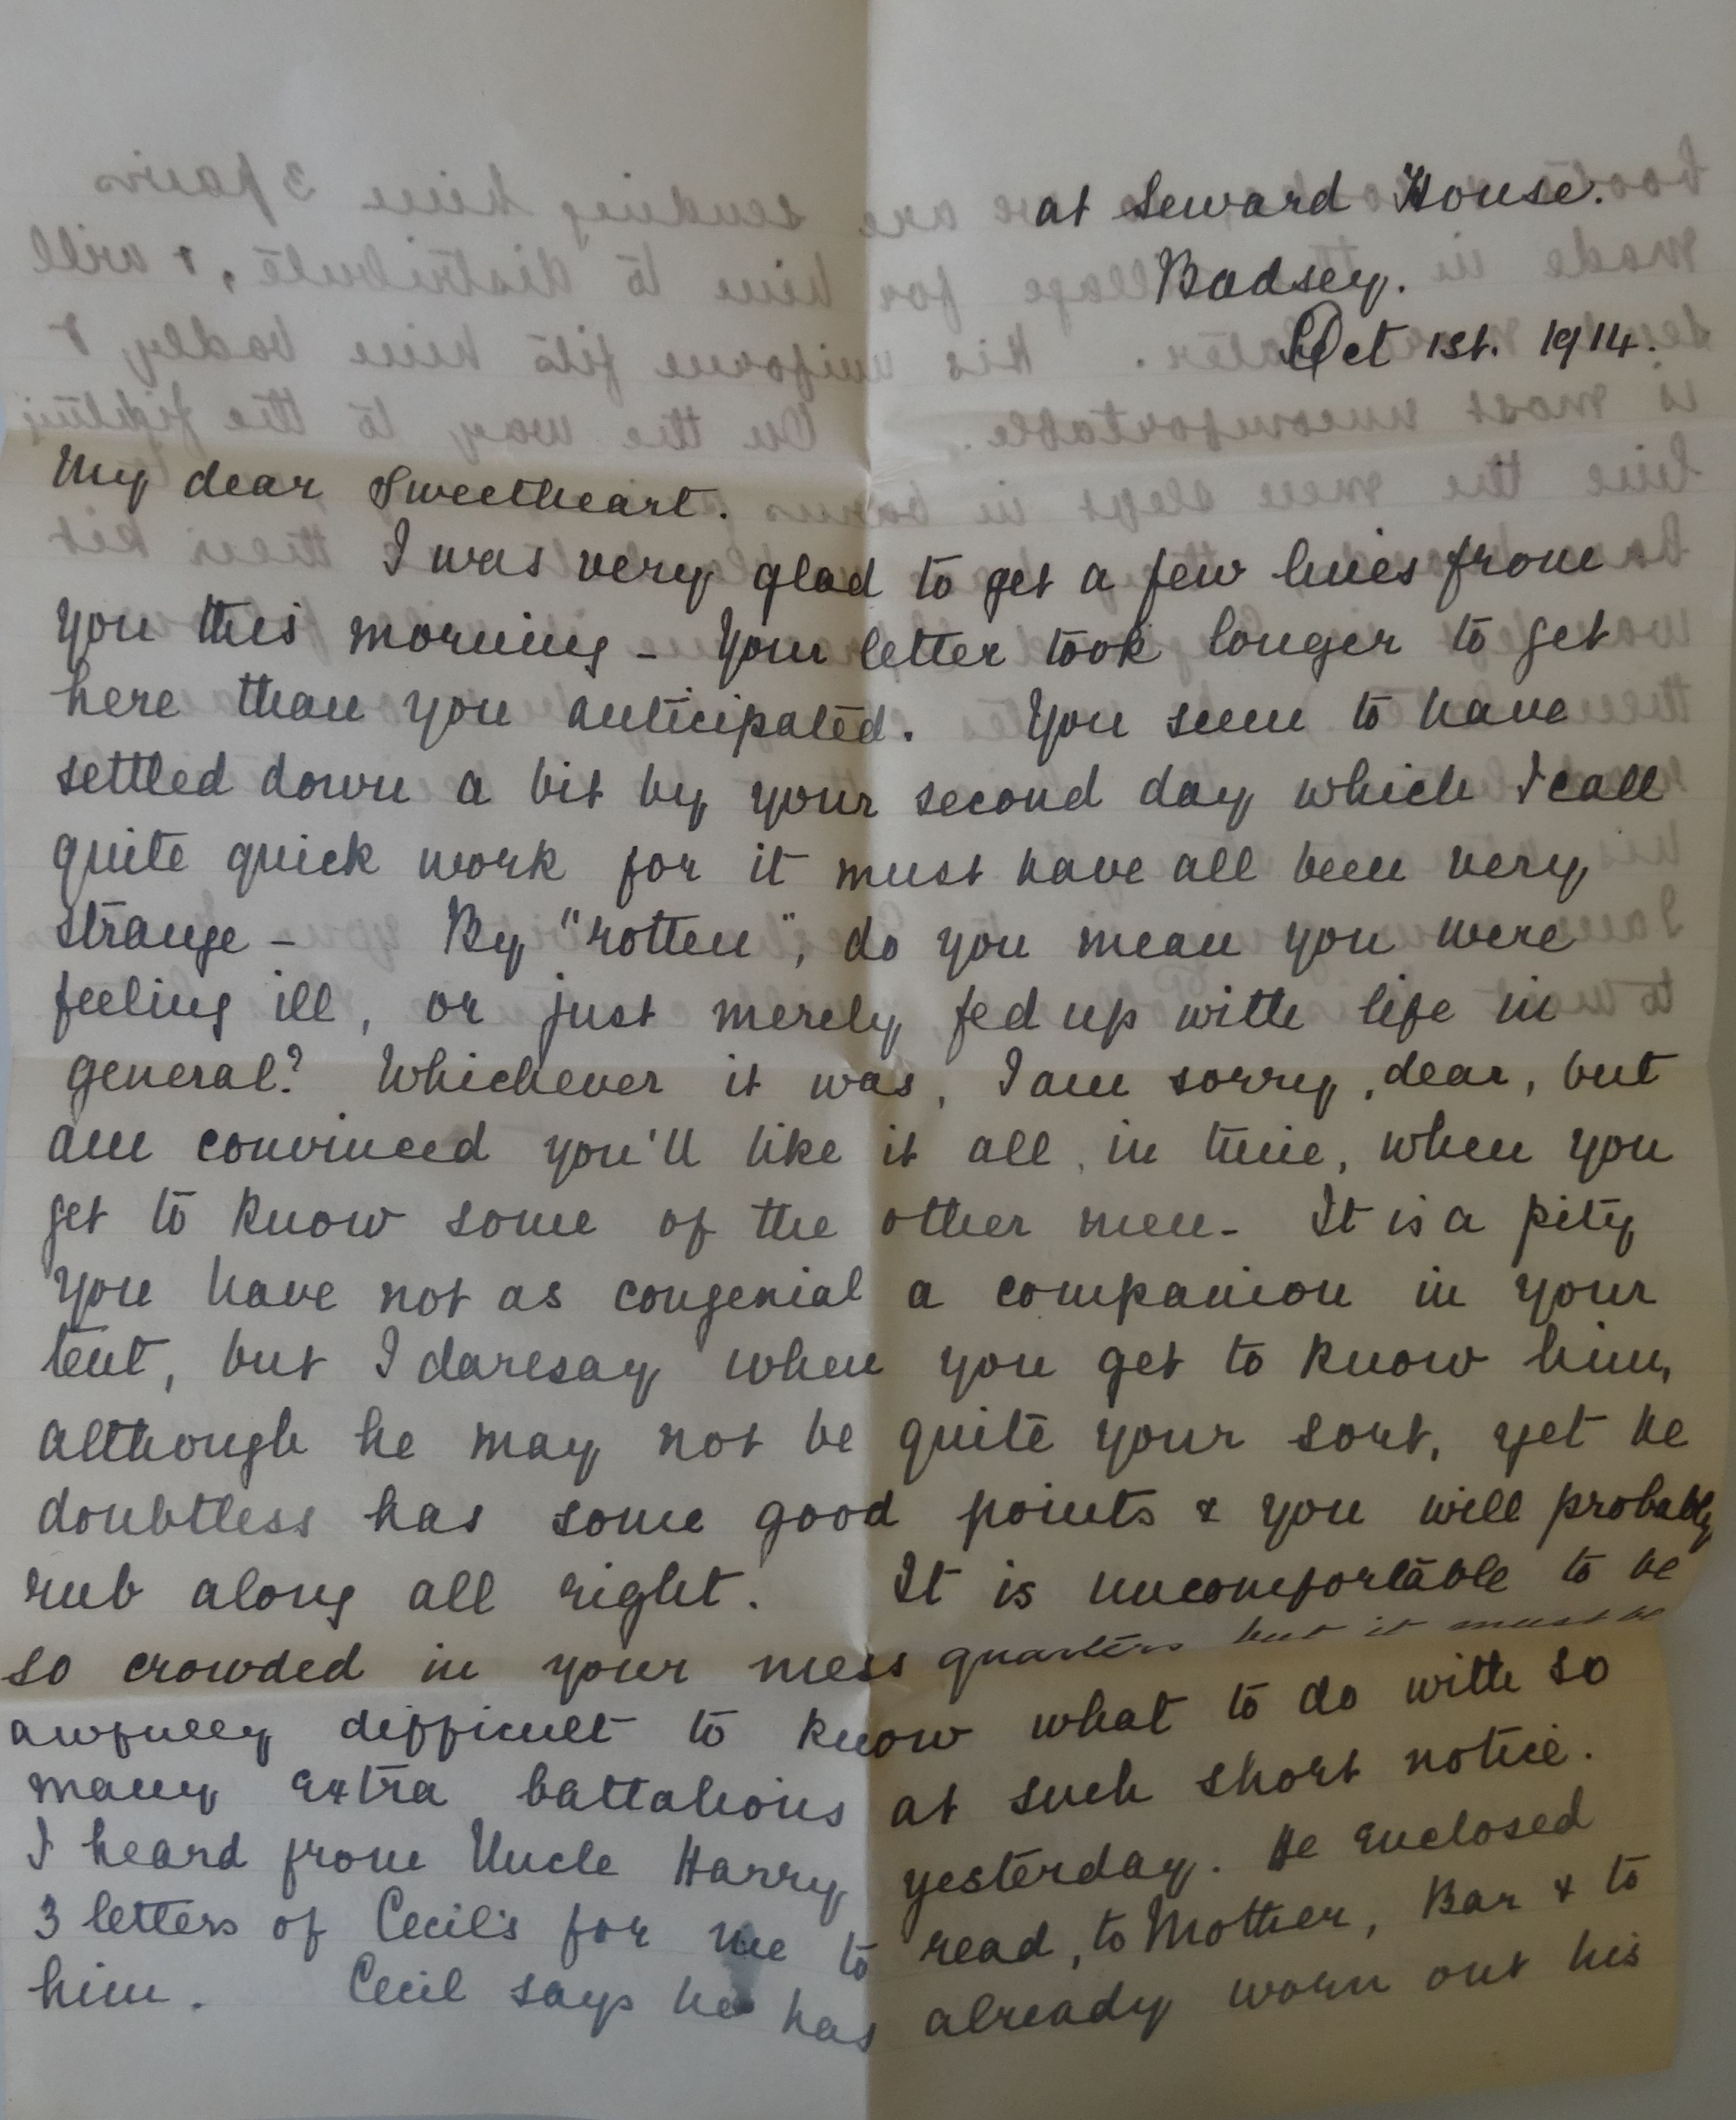 at Seward House.
Badsey.
Oct 1st. 1914.
My dear Sweetheart.
I was very glad to get a few lines from
you this morning - Your letter took longer to get
here than you anticipated. You seem to have
settled down a bit by your second day which I call
quite quick work for it must have all been very
strange - By "rotten", do you mean you were
feeling ill, or just merely fed up with life in
general? Whichever it was, I am sorry, dear, but
am convinced you'll like it all, in time, when you
get to know some of the other men - It is a pity
you have not as congenial a companion in your
tent, but I daresay when you get to know him,
although he may not be quite your sort, yet he
doubtless has some good points & you will probably
rub along all right. It is uncomfortable to be
so crowded in your mess quarters but it must be
awfully difficult to know what to do with so
many extra battalions at such short notice.
I heard from Uncle Harry yesterday. He enclosed
3 letters of Cecil's for me to read, to Mother, Bar & to
him. Cecil says he has already worn out his